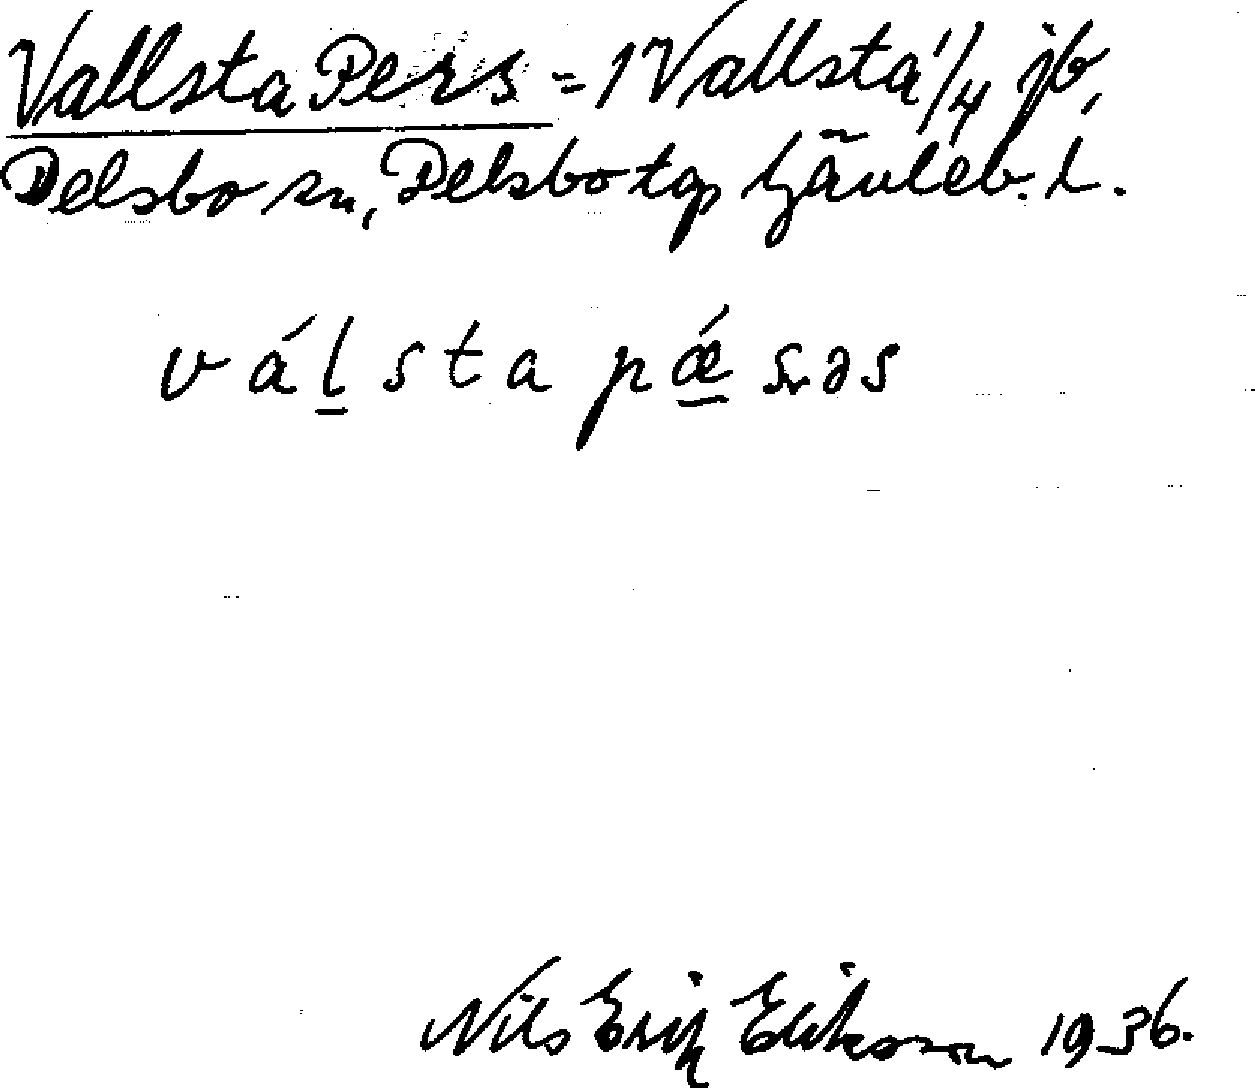 Vallsta Pers = 1 Vallsta 1/4 jb,
Delsbo sn, Delsbo tgp Gävleb. l.
válsta pǽsəs
Nils Erik Eriksson 1936.